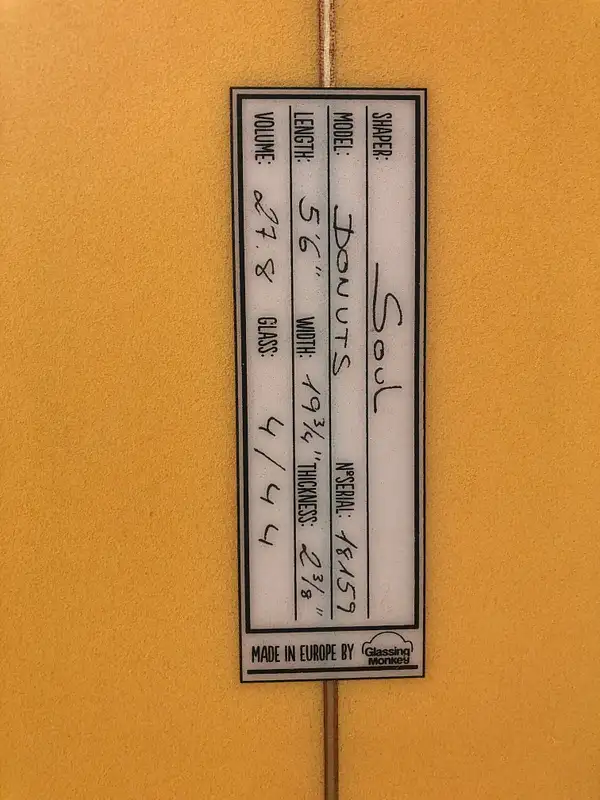 SHAPER: Soul
MODEL: DONUTS NºSERIAL: 18159
LENGTH: 5'6" WIDTH: 19 3/4" THICKNESS: 2 3/8"
VOLUME: 27.8 GLASS: 4/44
MADE IN EUROPE BY Glassing Monkey